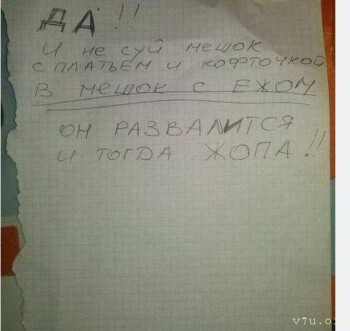 ДА!!
И не суй мешок
с платьем и кофточкой
В мешок с ежом
он развалится
и тогда жопа!!